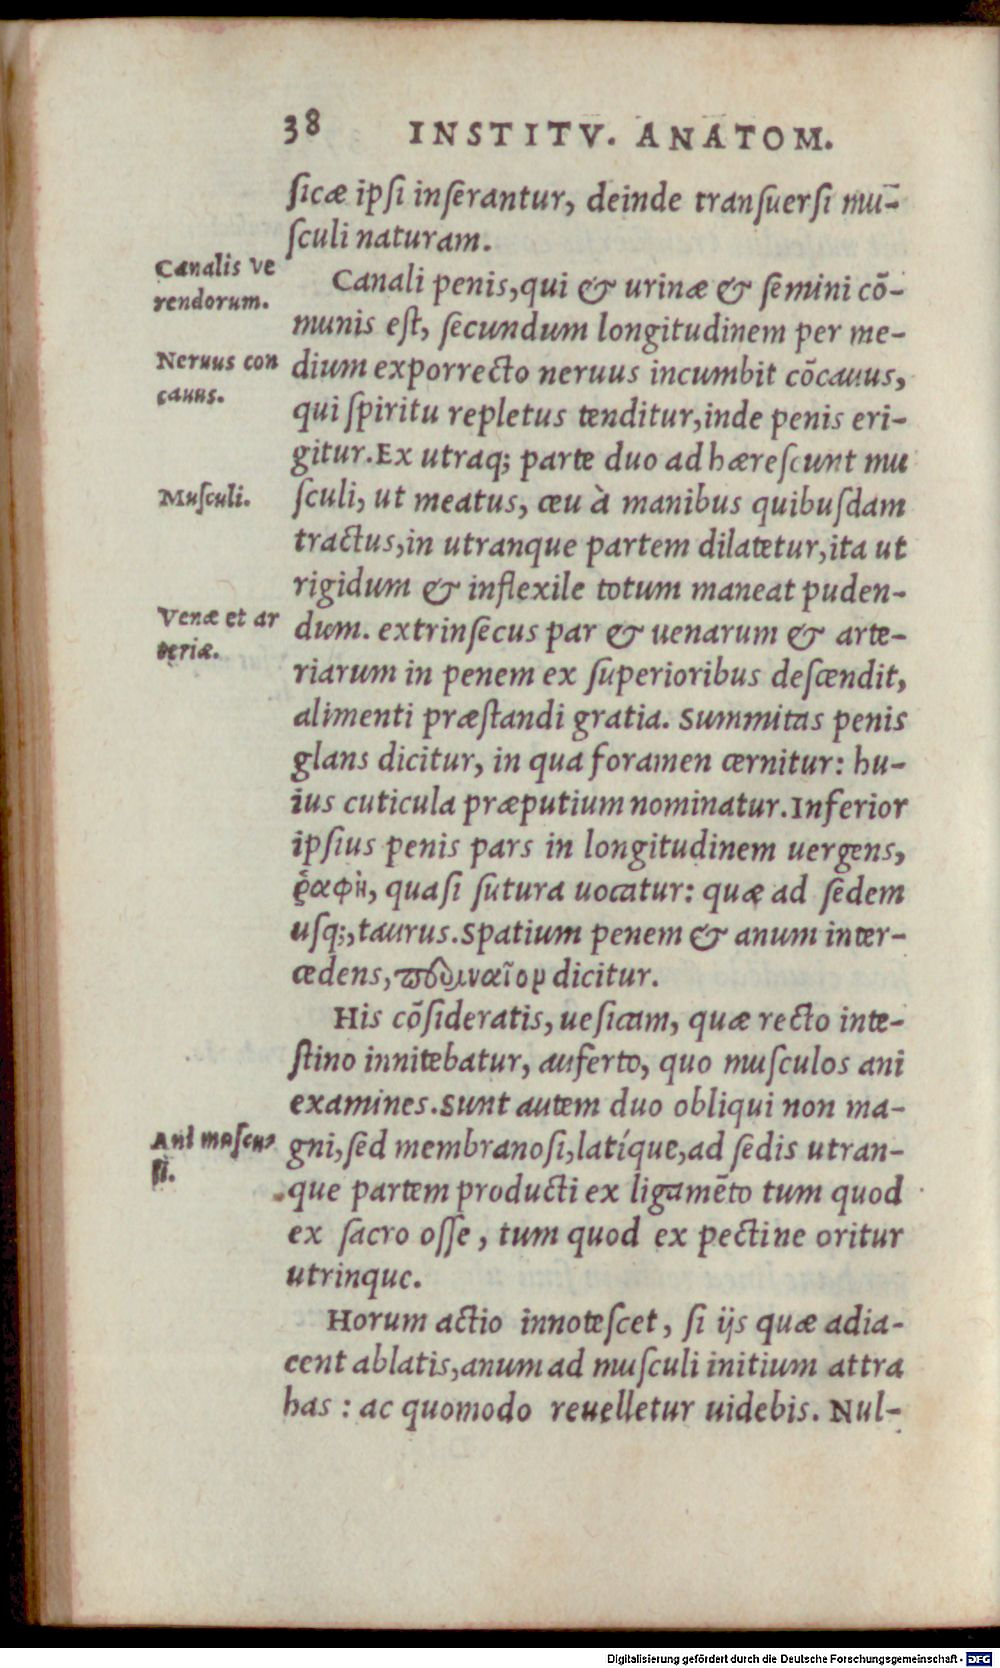 38 INSTITV. ANATOM.
ſicæ ipſi inſerantur, deinde tranſuerſi mū-
ſculi naturam.
Canalis ve
rendorum.
Canali penis,qui & urinæ & ſemini cō-
munis eſt, ſecundum longitudinem per me-
Neruus con
cauus.
dium exporrecto neruus incumbit cōcauus,
qui ſpiritu repletus tenditur,inde penis eri-
gitur.Ex utraq; parte duo adhæreſcunt mu
Muſculi.
ſculi, ut meatus, ceu à manibus quibuſdam
tractus,in utranque partem dilatetur,ita ut
rigidum & inflexile totum maneat puden-
Venæ et ar
teriæ.
dum. extrinſecus par & uenarum & arte-
riarum in penem ex ſuperioribus deſcendit,
alimenti præſtandi gratia. Summitas penis
glans dicitur, in qua foramen cernitur: hu-
ius cuticula præputium nominatur.Inferior
ipſius penis pars in longitudinem uergens,
ῥαφὴ, quaſi ſutura uocatur: quæ ad ſedem
uſq;,taurus.Spatium penem & anum inter-
cedens, dicitur.
His cōſideratis, ueſicam, quæ recto inte-
ſtino innitebatur, auferto, quo muſculos ani
examines.Sunt autem duo obliqui non ma-
Ani muſcu-
li.
gni,ſed membranoſi,latíque,ad ſedis utran-
que partem producti ex ligamēto tum quod
ex ſacro oſſe, tum quod ex pectine oritur
utrinque.
Horum actio innoteſcet, ſi ijs quæ adia-
cent ablatis,anum ad muſculi initium attra
has : ac quomodo reuelletur uidebis. Nul-
Digitalisierung gefördert durch die Deutsche Forschungsgemeinschaft - DFG